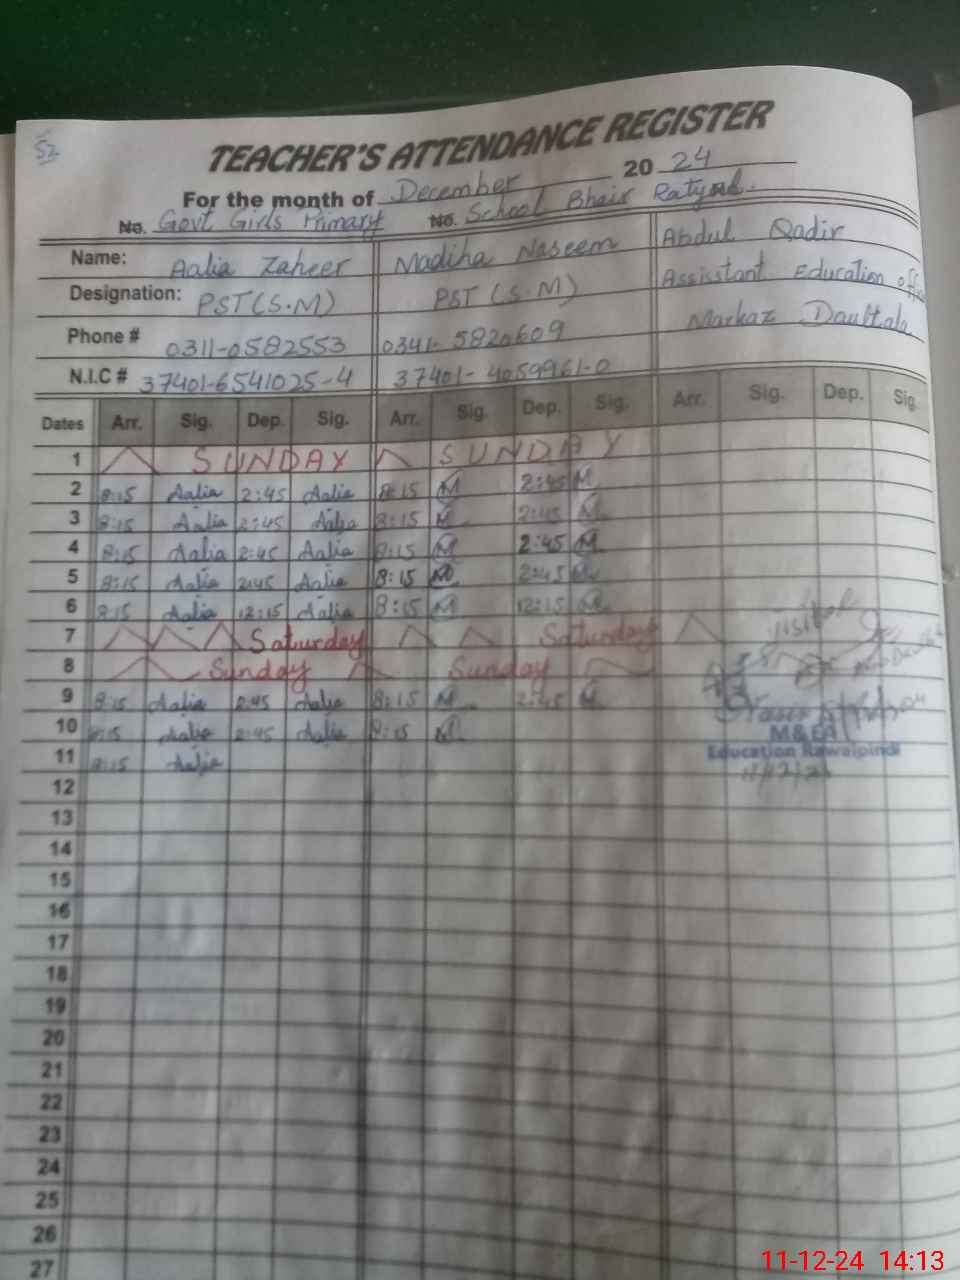 52
TEACHER'S ATTENDANCE REGISTER
For the month of December 20 24
No. Govt Girls Primary No. School Bhair Ratyal.
Name: Aalia Zaheer Madiha Naseem Abdul Qadir
Designation: PST (S.M) PST (S.M) Assisstant Education
Phone # 0311-0582553 0341-5820609 Markaz Daultala
N.I.C # 37401-6541025-4 37401-4059961-0
Dates Arr. Sig. Dep. Sig. Arr. Sig. Dep. Sig. Arr. Sig. Dep. Sig.
1 SUNDAY SUNDAY
2 8:15 Aalia 2:45 Aalia 8:15 M 2:45 M
3 8:15 Aalia 2:45 Aalia 8:15 M 2:45 M
4 8:15 Aalia 2:45 Aalia 8:15 M 2:45 M
5 8:15 Aalia 2:45 Aalia 8:15 M 2:45 M
6 8:15 Aalia 12:15 Aalia 8:15 M 12:15 M
7 Saturday Saturday Visitor
8 Sunday Sunday
9 8:15 Aalia 2:45 Aalia 8:15 M 2:45 M
10 8:15 Aalia 2:45 Aalia 8:15 M
M&EA
11 8:15 Aalia
Education Rawalpindi
12
13
14
15
16
17
18
19
20
21
22
23
24
25
26
27
11-12-24 14:13